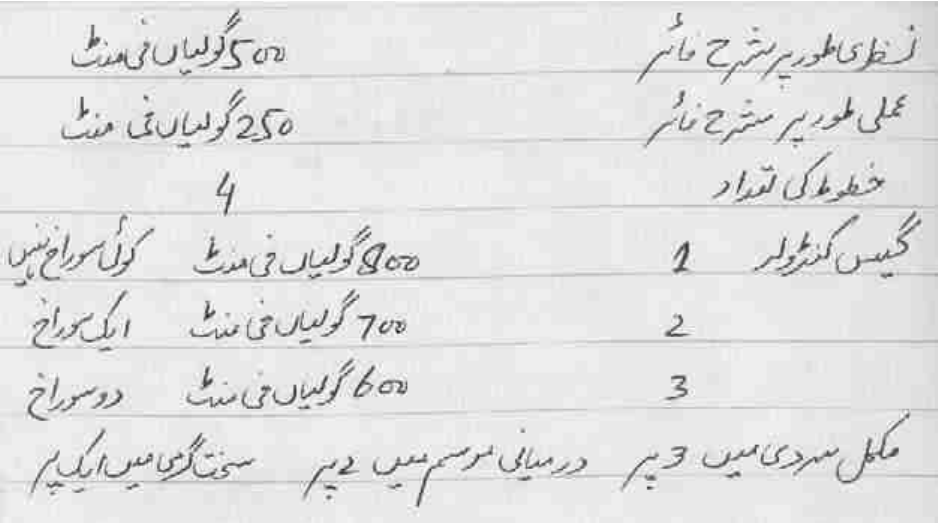 نظری طور پر شرح فائر 500 گولیاں فی منٹ
عملی طور پر شرح فائر 250 گولیاں فی منٹ
خطوط کی تعداد 4
گیس کنٹرولر 1 800 گولیاں فی منٹ کوئی سوراخ نہیں
2 700 گولیاں فی منٹ ایک سوراخ
3 600 گولیاں فی منٹ دو سوراخ
مکمل سردی میں 3 پر درمیانی موسم میں 2 پر سخت گرمی میں ایک پر